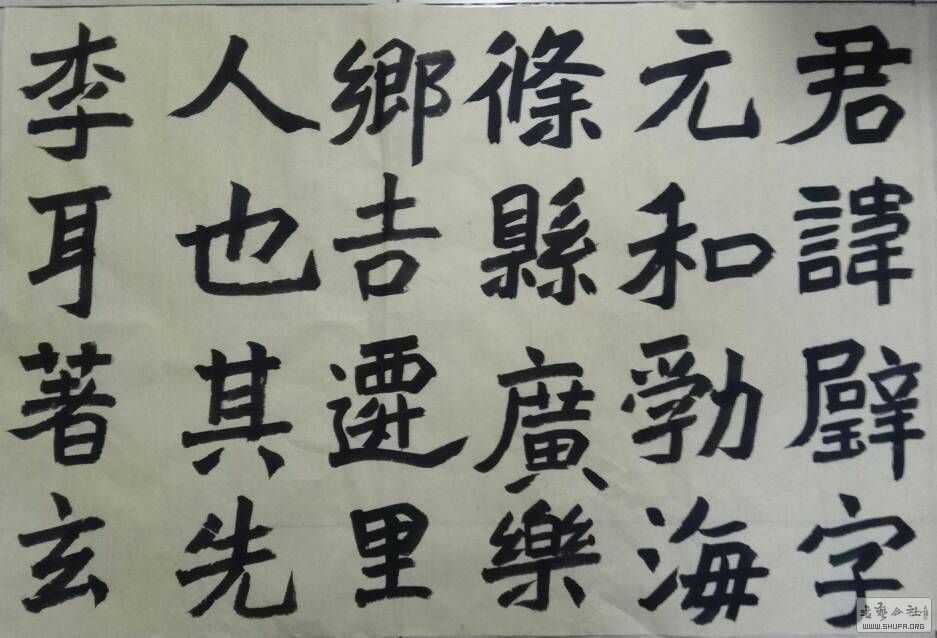 君諱璧字
元和勃海
條縣廣樂
鄉吉遷里
人也其先
李耳著玄
WWW.SHUFA.ORG